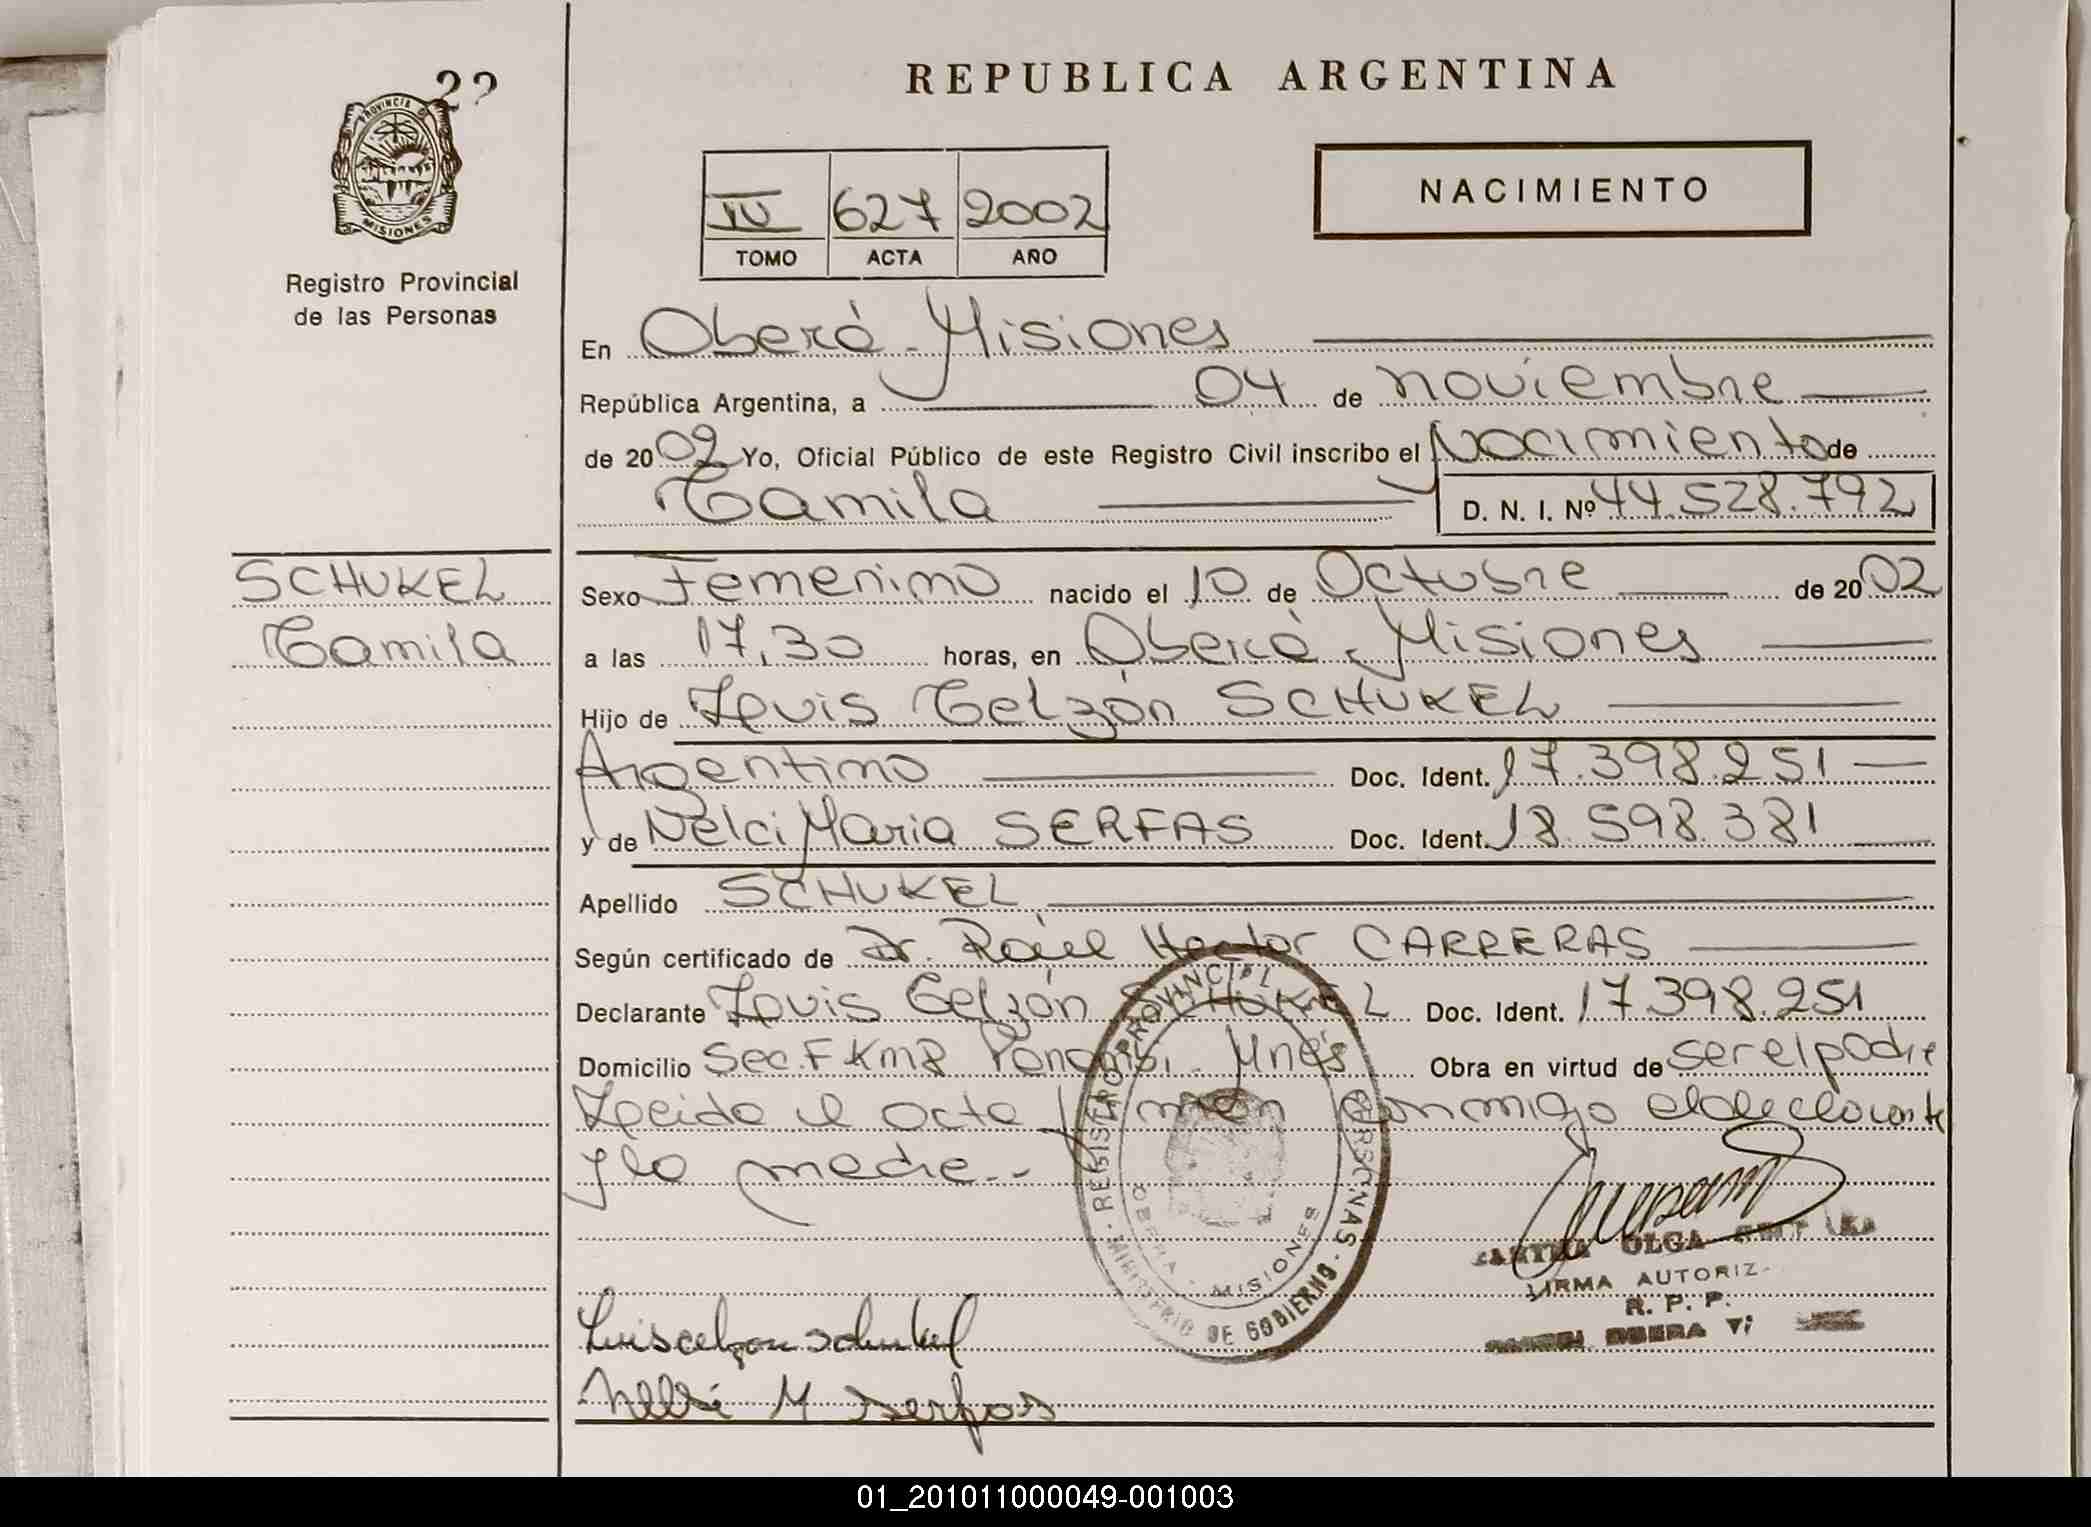 22
PROVINCIA D
MISIONES
Registro Provincial
de las Personas
REPUBLICA ARGENTINA
NACIMIENTO
IV 627 2002
TOMO ACTA AÑO
En Oberá - Misiones
República Argentina, a 04 de noviembre
de 2002 Yo, Oficial Público de este Registro Civil inscribo el Nacimiento de
Camila D. N. I. Nº 44.528.792
SCHUKEL
Camila
Sexo Femenino nacido el 10 de Octubre de 2002
a las 17,30 horas, en Oberá - Misiones
Hijo de Luis Celzón SCHUKEL
Argentino Doc. Ident. 17.398.251
y de Nelci Maria SERFAS Doc. Ident. 18.598.381
Apellido SCHUKEL
Según certificado de Dr. Raúl Hector CARRERAS
Declarante Luis Celzón SCHUKEL Doc. Ident. 17.398.251
Domicilio Sec. F Km 8 Panambi. Mnes Obra en virtud de ser el padre
Leida el acta firman conmigo el declarante
y la madre.-
REGISTRO PROVINCIAL PERSONAS
MINISTERIO DE GOBIERNO
OBERA - MISIONES
OLGA
FIRMA AUTORIZ.
R. P. P.
OBERA
Luis celzon schukel
Nelci M serfas
01_201011000049-001003